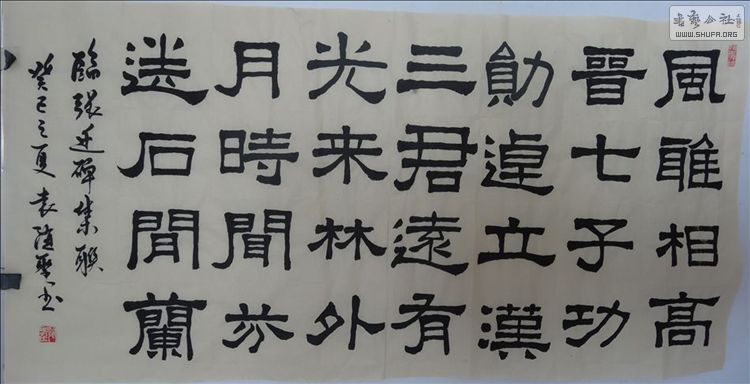 風雅相高
晉七子功
勛逴立漢
三君遠有
光来林外
月時聞芬
送石間蘭
臨張迁碑集联
癸巳之夏袁
书艺公社
WWW.SHUFA.ORG